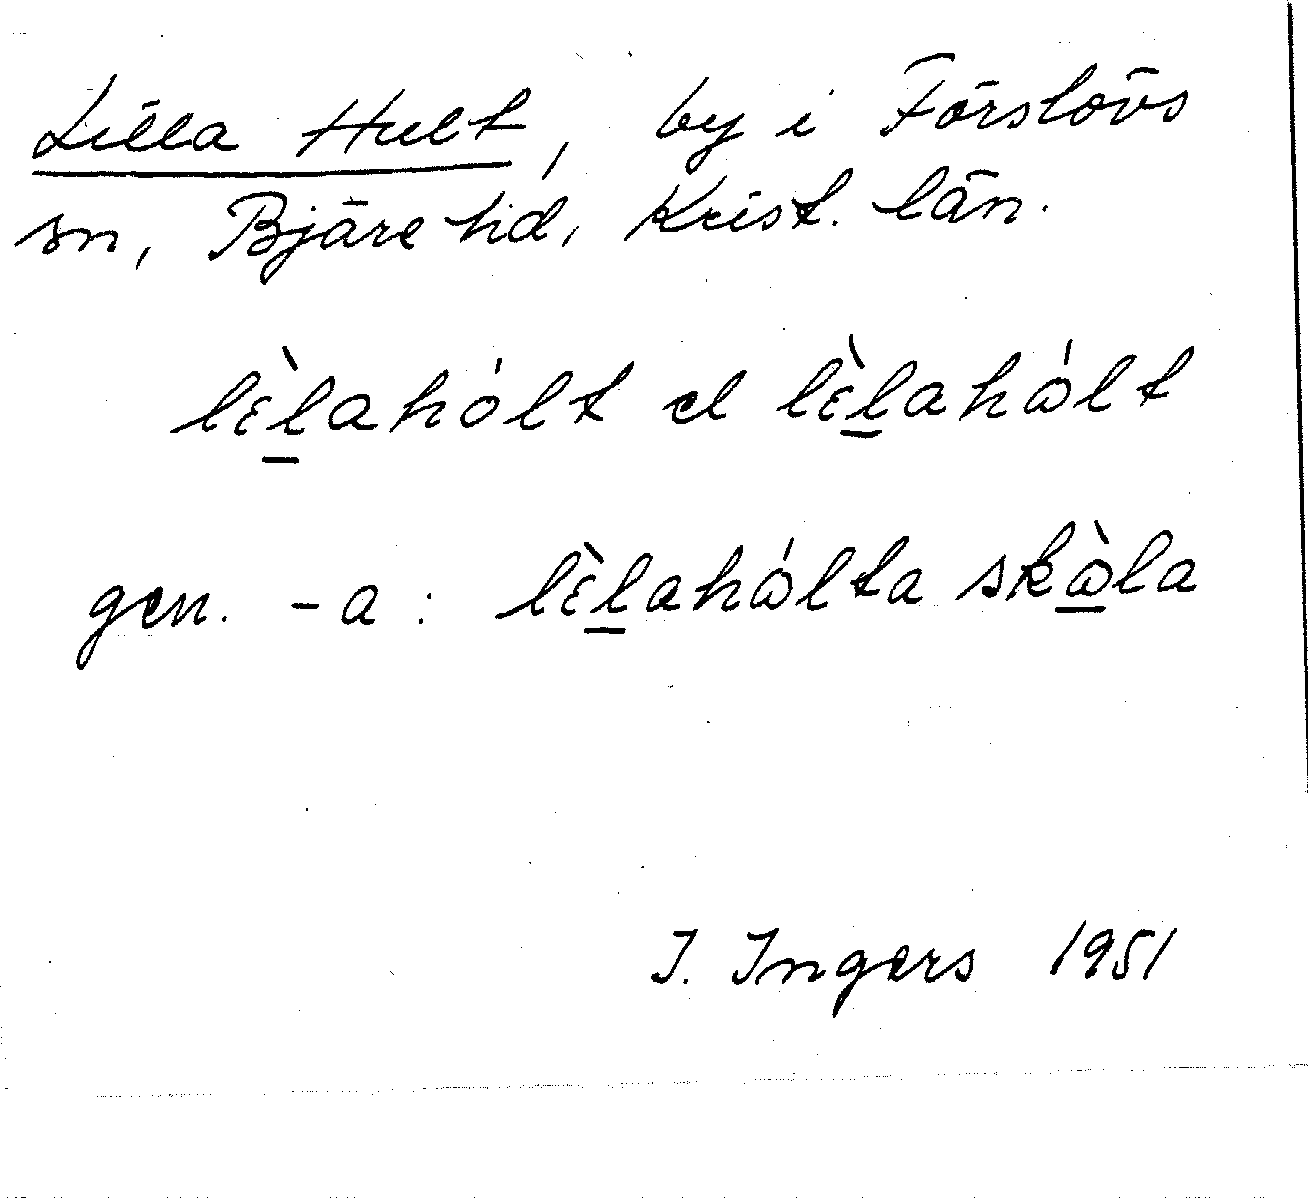 Lilla Hult, by i Förslövs
sn, Bjäre hd, Krist. län.
lɛ̀l̲ahólt el lɛ̀l̲ahɷ́lt
gen. -a: lɛ̀l̲ahɷ́lta skɷ̲̀la
I. Ingers 1951